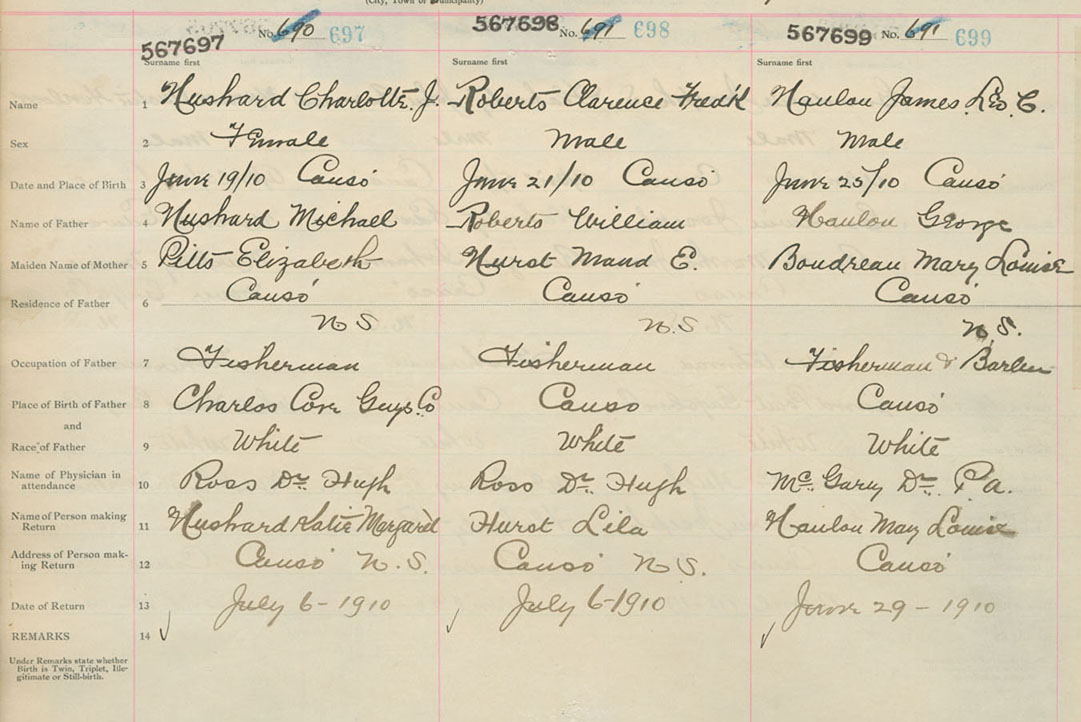 (City, Town or Municipality)
567697 No. 690 697 567698 No. 691 698 567699 No. 691 699
Surname first Surname first Surname first
Name 1 Hushard Charlotte. J. Roberts Clarence Fred'k Hanlon James Leo C.
Sex 2 Female Male Male
Date and Place of Birth 3 June 19/10 Canso June 21/10 Canso June 25/10 Canso
Name of Father 4 Hushard Michael Roberts William Hanlon George
Maiden Name of Mother 5 Pitts Elizabeth Hurst Maud E. Boudreau Mary Louise
Residence of Father 6 Canso Canso Canso
N S N. S N. S.
Occupation of Father 7 Fisherman Fisherman Fisherman & Barber
Place of Birth of Father 8 Charlos Cove Guys. Co Canso Canso
and
Race of Father 9 White White White
Name of Physician in
attendance 10 Ross Dr. Hugh Ross Dr. Hugh Mc. Gary Dr. P. A.
Name of Person making
Return 11 Hushard Katie Margaret Hurst Lila Hanlon Mary Louise
Address of Person mak-
ing Return 12 Canso N. S. Canso N S. Canso
Date of Return 13 July 6-1910 July 6-1910 June 29-1910
REMARKS 14
Under Remarks state whether
Birth is Twin, Triplet, Ille-
gitimate or Still-birth.